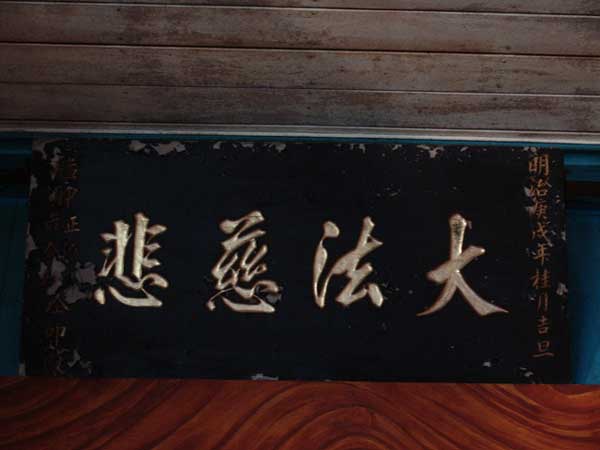 明治庚戌年桂月吉旦
大法慈悲